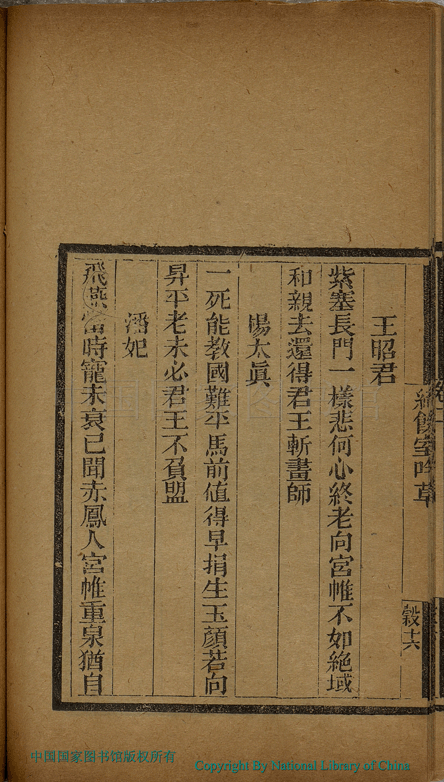 王昭君
紫塞長門一樣悲何心終老向宮帷不如絶域
和親去還得君王斬畫師
楊太眞
一死能教國難平馬前値得早捐生玉顏若向
昇平老未必君王不負盟
潘妃
飛燕當時寵未衰已聞赤鳳人宮帷重泉猶自
室吟草
十六
中国国家图书馆版权所有
Copyright By National Library of China